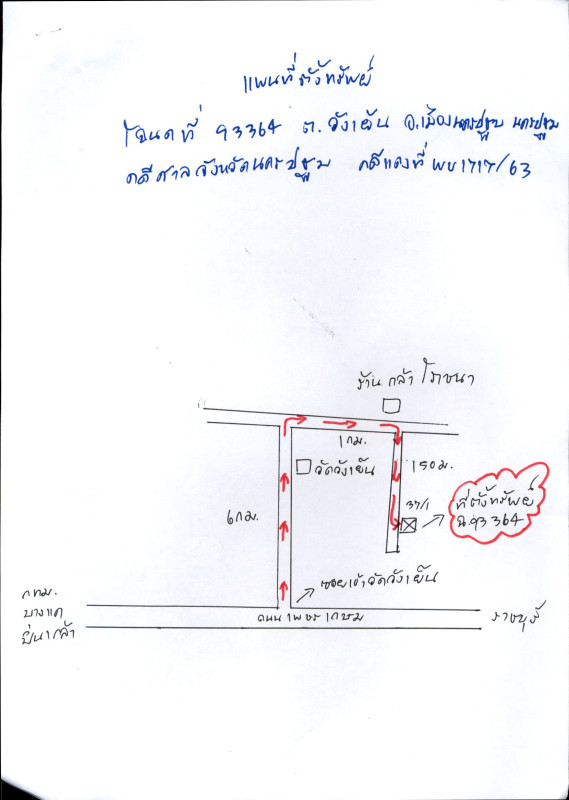 แผนที่ตั้งทรัพย์
โฉนดที่ 93364 ต.วังเย็น อ.เมืองนครปฐม นครปฐม
คดีศาลจังหวัดนครปฐม คดีแดงที่ ผบ1717/63
ร้าน กล้า โภชนา
1 กม.
วัดวังเย็น
150 ม.
37/1
ที่ตั้งทรัพย์
ฉ.93364
6 กม.
ซอยเข้าวัดวังเย็น
กทม.
บางแค
ปิ่นเกล้า
ถนนเพชรเกษม
ราชบุรี